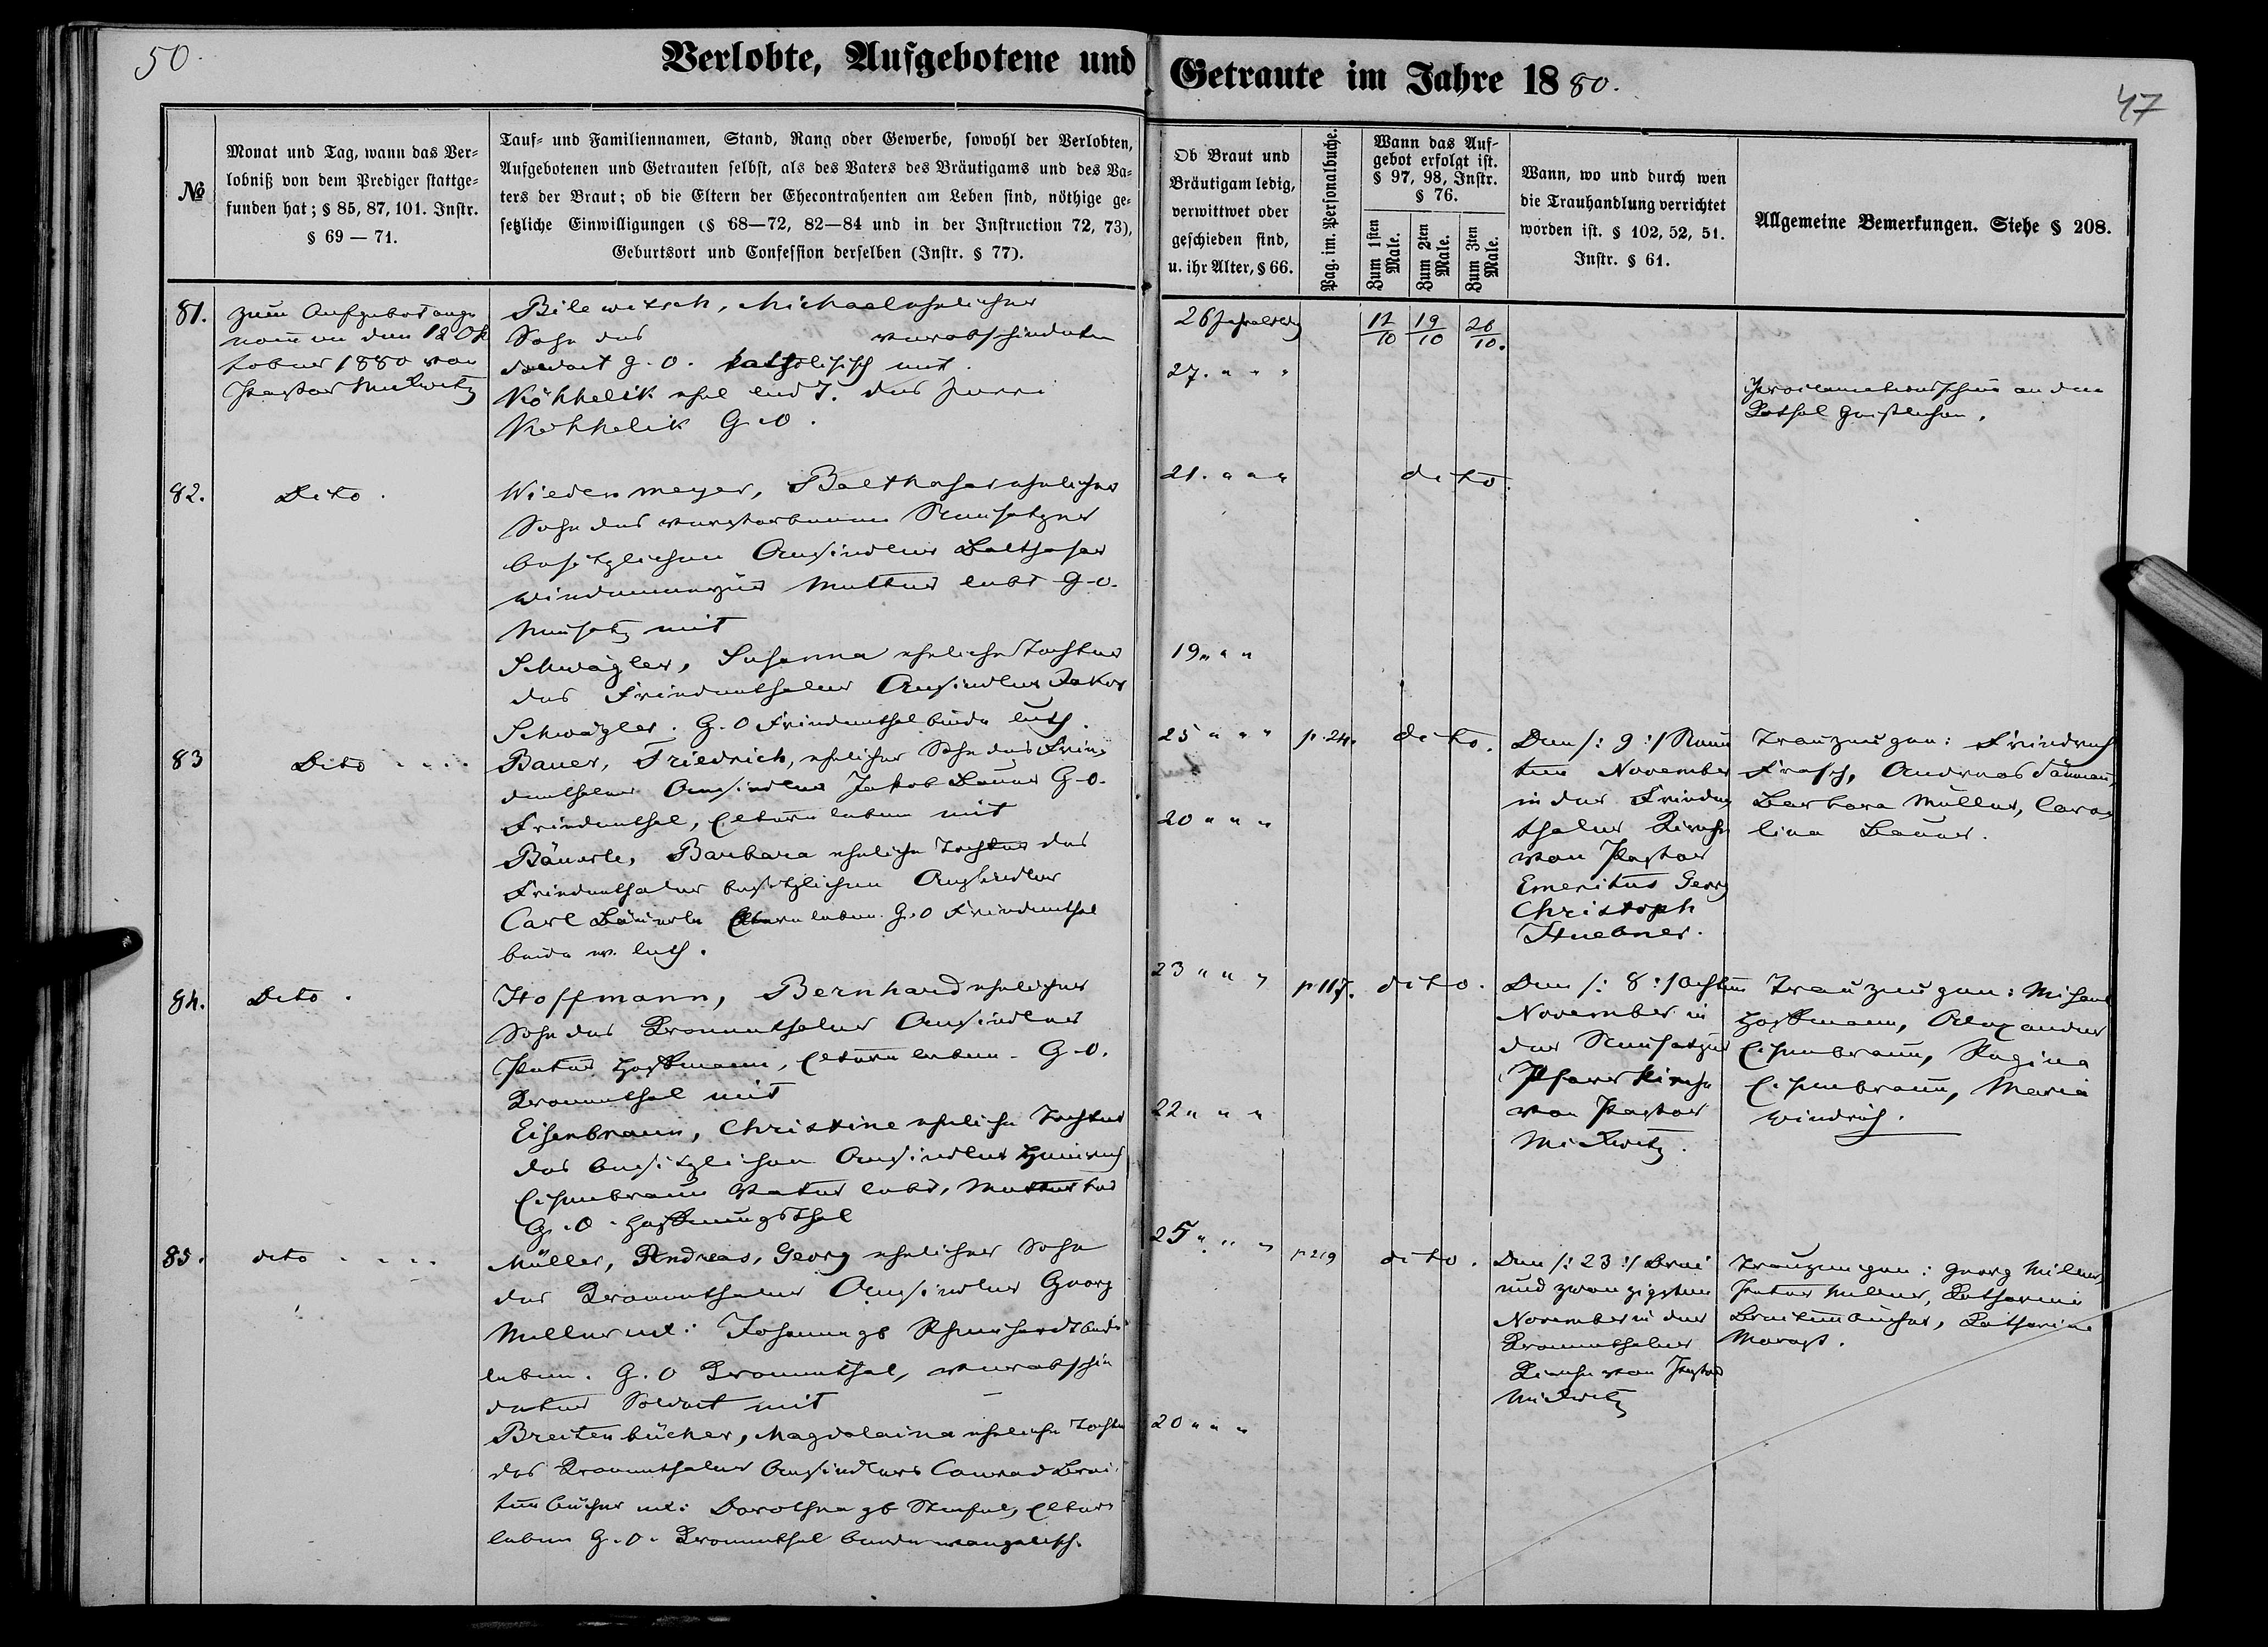 50.
Verlobte, Aufgebotene und Getraute im Jahre 1880.
47
№
Monat und Tag, wann das Ver-
lobniß von dem Prediger stattge-
funden hat; § 85, 87, 101. Instr.
§ 69 — 71.
Tauf- und Familiennamen, Stand, Rang oder Gewerbe, sowohl der Verlobten,
Aufgebotenen und Getrauten selbst, als des Vaters des Bräutigams und des Va-
ters der Braut; ob die Eltern der Ehecontrahenten am Leben sind, nöthige ge-
setzliche Einwilligungen (§ 68—72, 82—84 und in der Instruction 72, 73),
Geburtsort und Confession derselben (Instr. § 77).
Ob Braut und
Bräutigam ledig,
verwittwet oder
geschieden sind,
u. ihr Alter, § 66.
Pag. im. Personalbuche.
Wann das Auf-
gebot erfolgt ist.
§ 97, 98, Instr.
§ 76.
Zum 1sten Male.
Zum 2ten Male.
Zum 3ten Male.
Wann, wo und durch wen
die Trauhandlung verrichtet
worden ist. § 102, 52, 51.
Instr. § 61.
Allgemeine Bemerkungen. Siehe § 208.
81.
zum Aufgebot ange
nommen den 12 Ok
tober 1880 von
Pastor Mickwitz
Bilewitsch, Michael ehelicher
Sohn des verabschiedeten
Soldat G. O. katholisch mit
Köhhelik ehel led T. des
Köhhelik G. O.
26 Jahr ledig
27. " " "
12/10 19/10 26/10.
Proclamationsschein an den
Kathol Geistlichen.
82.
Dito.
Wiedenmeyer, Balthasar ehelicher
Sohn des verstorbenen Neusatzer
besitzlichen Ansiedler Balthasar
Wiedenmeyer Mutter lebt G. O.
Neusatz mit
Schwägler, Susanna eheliche Tochter
des Friedenthaler Ansiedler Jakob
Schwägler. G. O Friedenthal beide luth.
21. " " "
19 " " "
dito.
83
Dito . . . .
Bauer, Friedrich, ehelicher Sohn des Frie-
denthaler Ansiedler Jakob Bauer G. O.
Friedenthal, Eltern leben mit
Bäuerle, Barbara eheliche Tochter des
Friedenthaler besitzlichen Ansiedler
Carl Bäuerle Eltern leben. G. O Friedenthal
beide ev. luth.
25 " " "
20 " " "
p. 24.
dito.
Den /: 9 :/ Neun
ten November
in der Frieden
thaler Kirche
von Pastor
Emeritus Georg
Christoph
Huebner.
Trauzeugen: Friedrich
Frasch, Andreas
Barbara Müller, Caro
lina Bauer.
84.
Dito.
Hoffmann, Bernhard ehelicher
Sohn des Kronenthaler Ansiedler
Peter Hoffmann, Eltern leben. G. O.
Kronenthal mit
Eisenbraun, Christine eheliche Tochter
des besitzlichen Ansiedler Heinrich
Eisenbraun Vater lebt, Mutter tod
G. O. Hoffnungsthal
23 " " "
22 " " "
p 117.
dito.
Den /: 8 :/ Achten
November in
der Neusatzer
Pfarrkirche
von Pastor
Mickwitz.
Trauzeugen: Michael
Hoffmann, Alexander
Eisenbraun, Regina
Eisenbraun, Maria
Windrich.
85.
dito . . . .
Müller, Andreas, Georg ehelicher Sohn
des Kronenthaler Ansiedler Georg
Müller ux: Johanna gb Rheinhardt beide
leben. G. O Kronenthal, verabschie
deter Soldat mit
Breitenbücher, Magdalaina eheliche Tochter
des Kronenthaler Ansiedlers Conrad Brei-
tenbücher ux: Dorothea gb Stiefel, Eltern
leben G. O. Kronenthal beide evangelisch.
25 " " "
20 " " "
p 219
dito.
Den /: 23 :/ Drei
und zwanzigsten
November in der
Kronenthaler
Kirche von Pastor
Mickwitz
Trauzeugen: Georg Miller,
Peter Miller, Katharina
Breitenbücher, Katharina